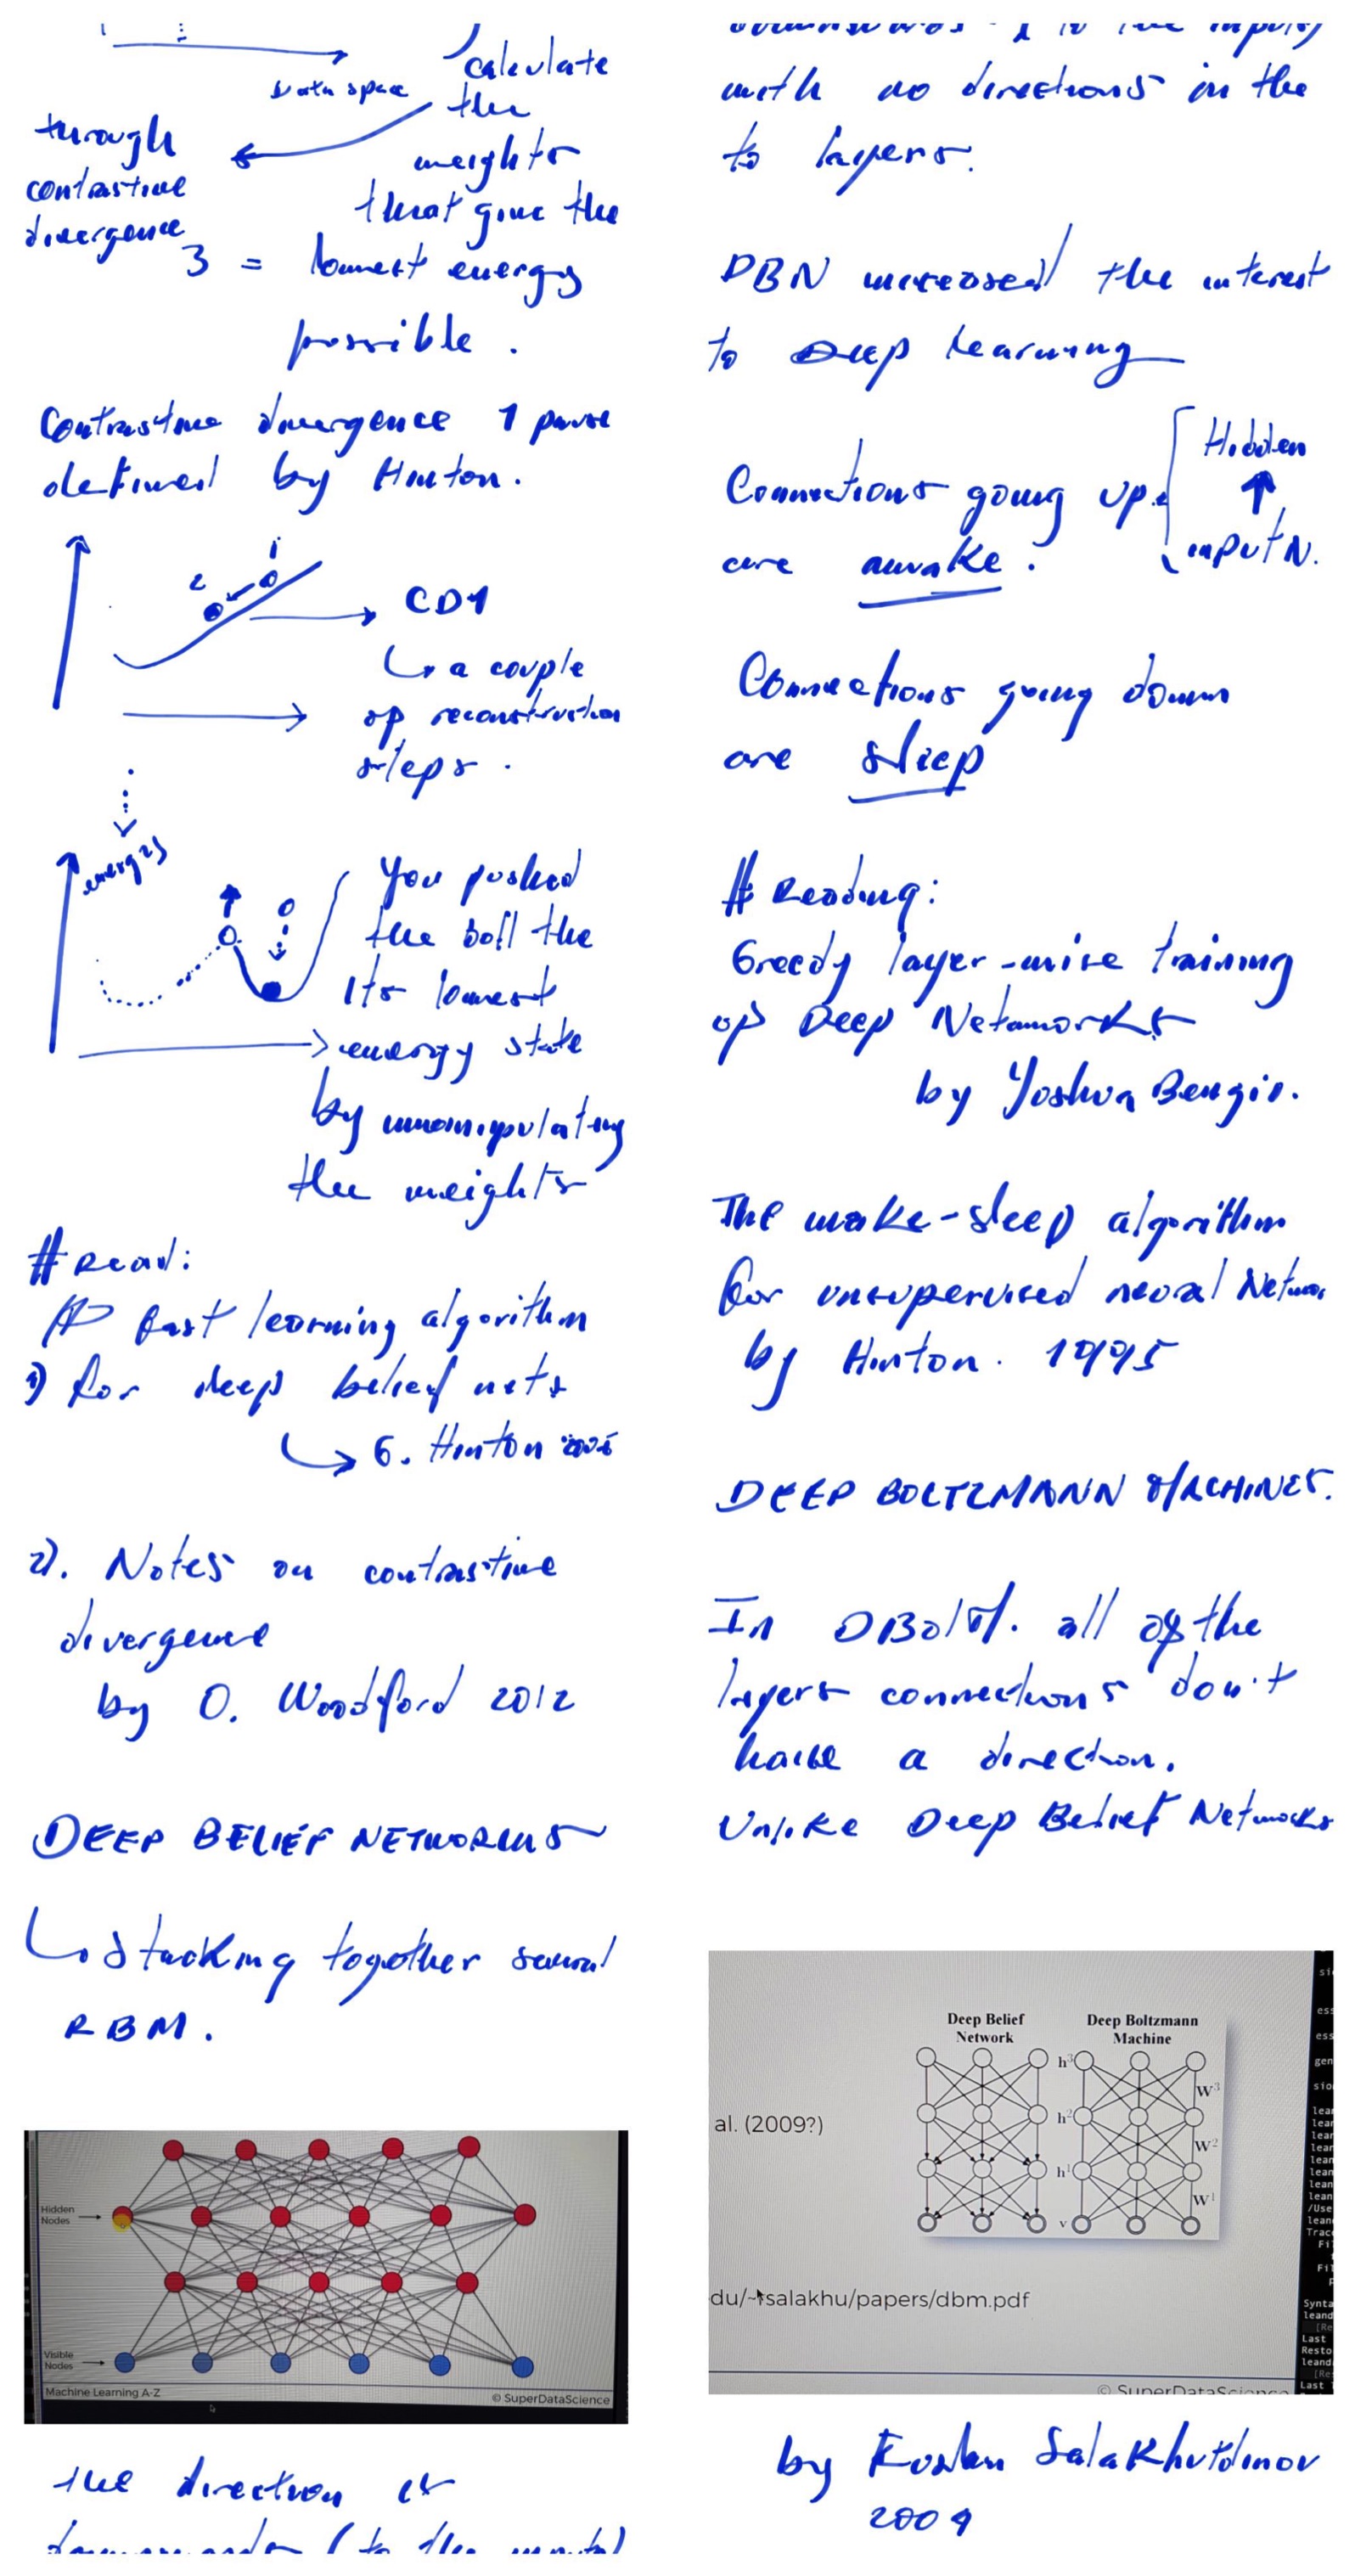 calculate
Data space
the
through
weights
contrastive
that give the
divergence
3 = lowest energy
possible.
Contrastive divergence 1
defined by Hinton.
1
2
CD1
a couple
of reconstruction
steps.
energy
You pushed
the ball the
Its lowest
energy state
by manipulating
the weights
# Read:
A fast learning algorithm
1) for deep belief nets
G. Hinton
2). Notes on contrastive
divergence
by O. Woodford 2012
DEEP BELIEF NETWORKS
Stacking together several
RBM.
Hidden
Nodes
Visible
Nodes
Machine Learning A-Z
© SuperDataScience
the direction is
downwards (to the inputs)
with no directions in the
to layers.
DBN increased the interest
to Deep Learning
Hidden
Connections going up
are awake.
input N.
Connections going down
are sleep
# Reading:
Greedy layer-wise training
of Deep Netaworks
by Yoshua Bengio.
The wake-sleep algorithm
for unsupervised neural Netwo
by Hinton. 1995
DEEP BOLTZMANN MACHINES.
In DBoltM. all of the
layers connections don't
have a direction.
Unlike Deep Belief Networks
Deep Belief
Network
Deep Boltzmann
Machine
h3
W3
h2
al. (2009?)
W2
h1
W1
v
du/~rsalakhu/papers/dbm.pdf
© SuperDataScience
by Ruslan Salakhutdinov
2009